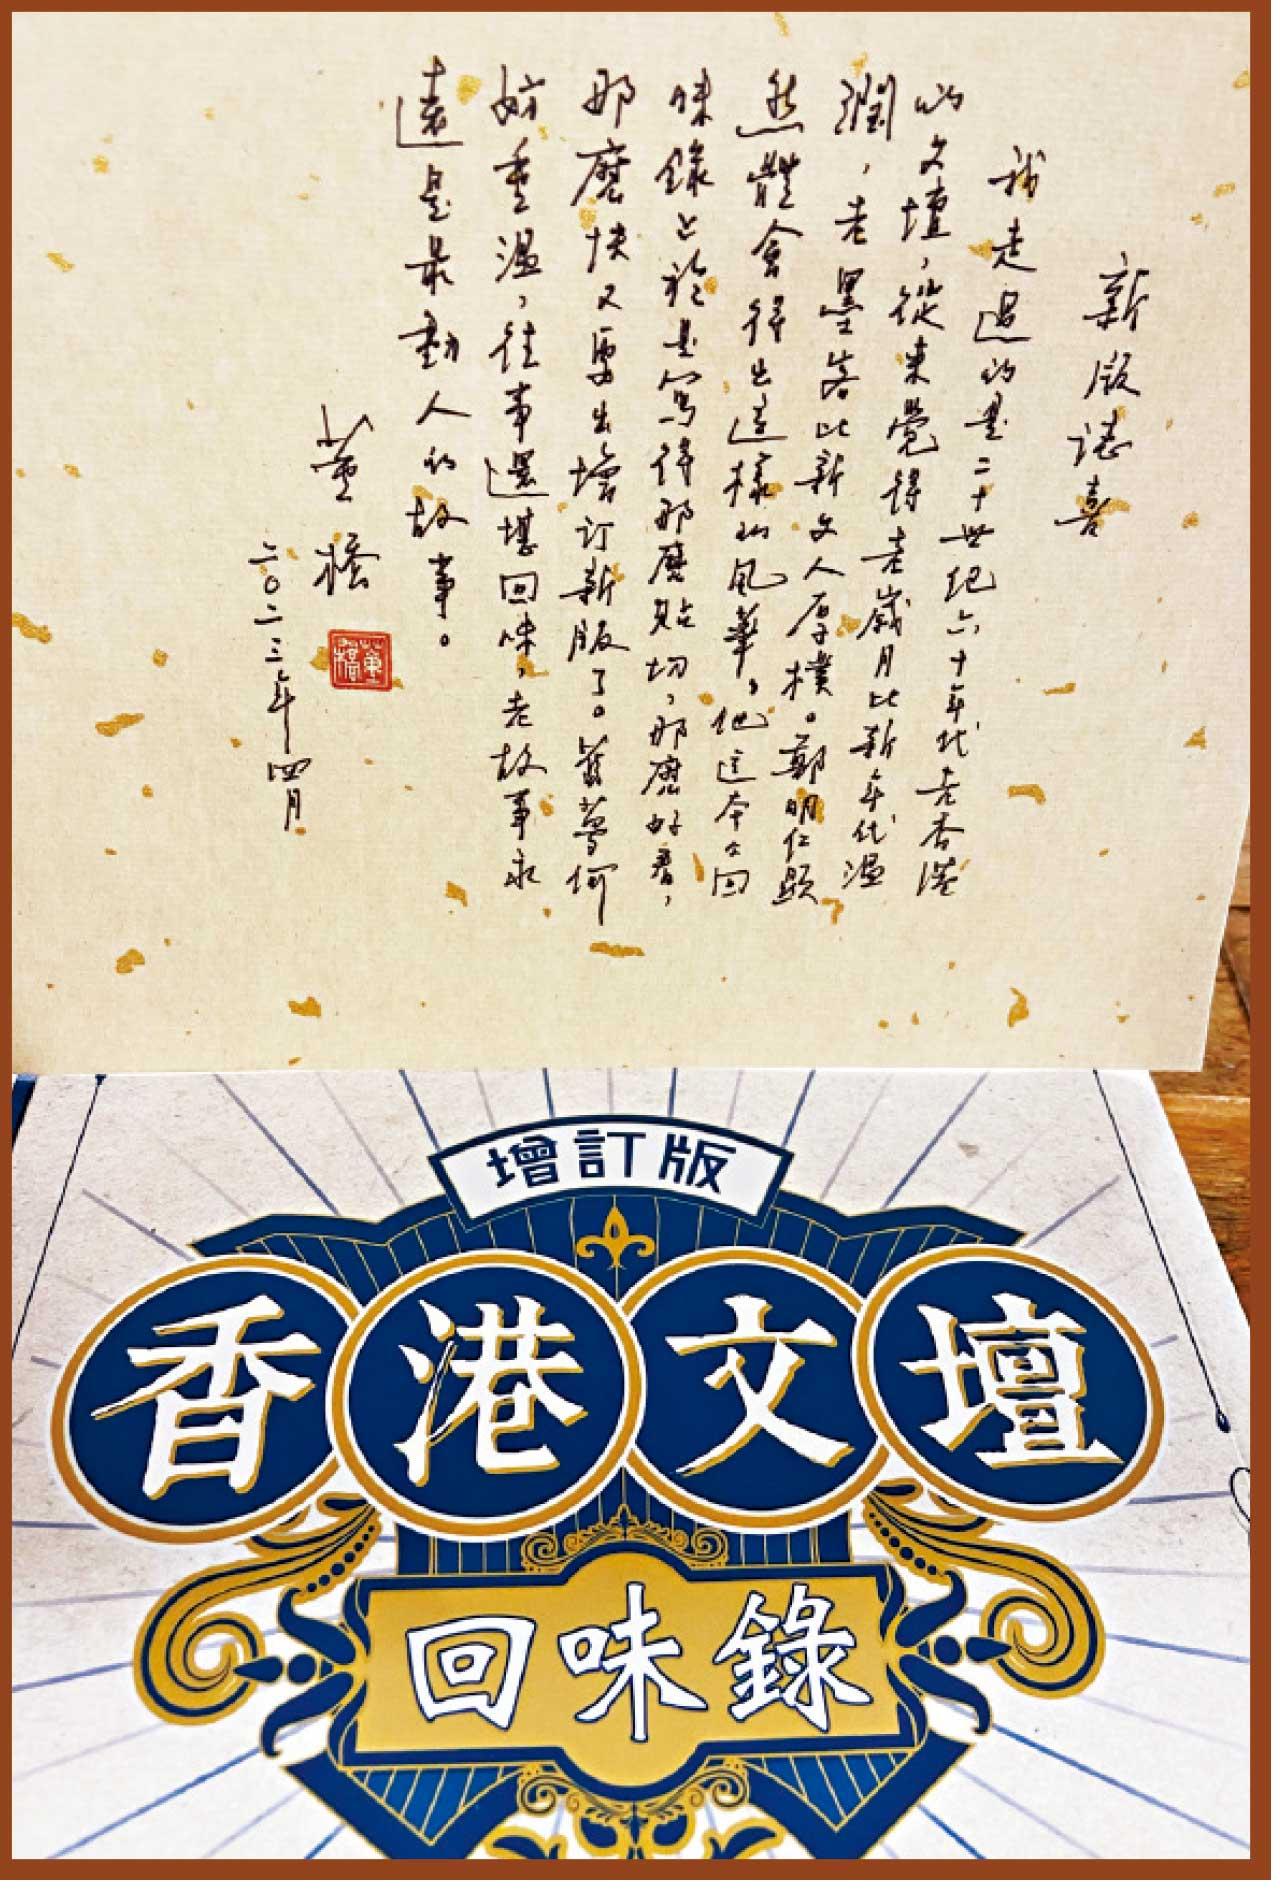 新版誌喜
我走過的是二十世紀六十年代老香港
的文壇，從來覺得老歲月比新年代溫
潤，老墨客比新文人厚樸。鄭明仁顯
然體會得出這樣的風華，他這本《回
味錄》於是寫得那麼貼切，那麼好看，
那麼快又要出增訂新版了。舊夢何
妨重溫，往事還堪回味，老故事永
遠是最動人的故事。
董橋
二〇二三年四月
董橋
增訂版
香港文壇
回味錄